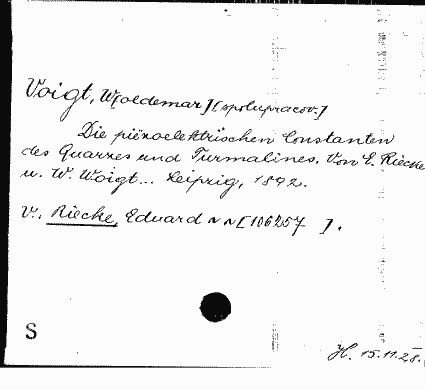 Voigt, W[oldemar] [spolupracov.]
Die piëzoelektrischen Constanten
des Quarzes und Turmalines. Von E. Riecke
u. W. Woigt... Leipzig, 1892.
v. Riecke, Eduard ~ ~ [106257 ].
S
H. 15.11.28.